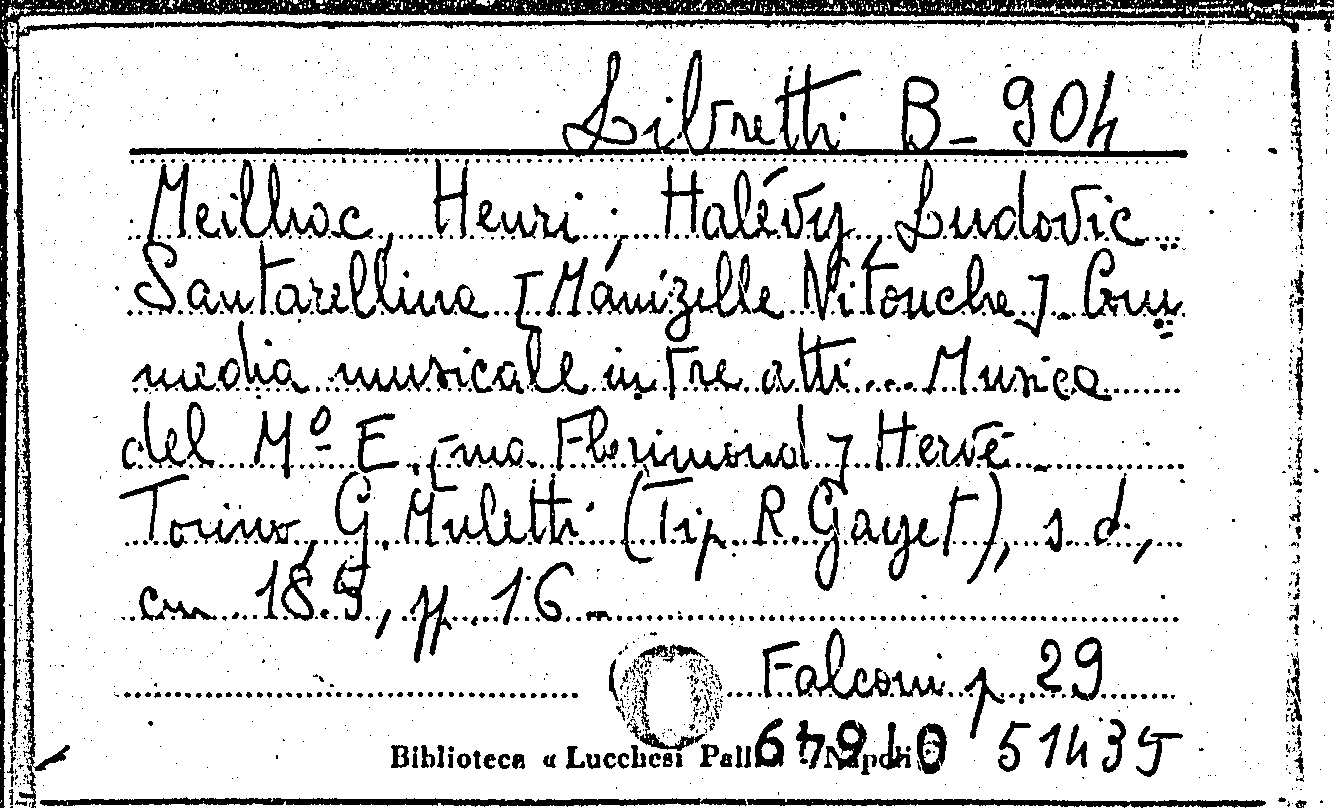 Libretti B-904
Meilhac, Henri; Halévy, Ludovic
Santarellina [Mamizelle Nitouche]. Com=
media musicale in tre atti... Musica
del Mº E. [ma Florimond] Hervé
Torino, G. Muletti (Tip. R. Gayet), s. d.,
cm 18.5, pp. 16 -
Falconi p. 29
Biblioteca « Lucchesi Palli » Napoli
51435